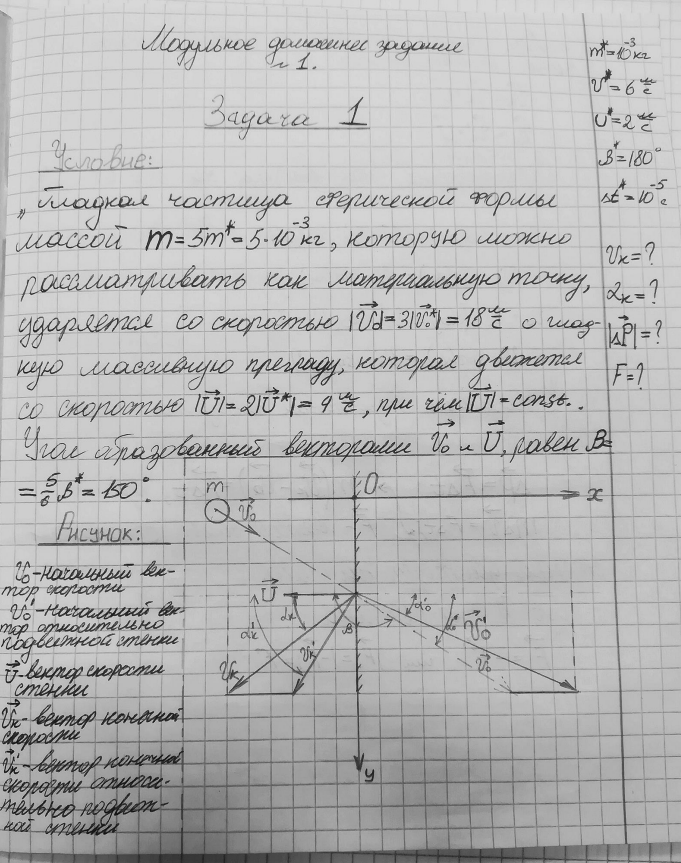 Модульное домашнее задание
№1.
Задача 1
Условие:
„Гладкая частица сферической формы
массой m=5m*=5·10⁻³кг, которую можно
рассматривать как материальную точку,
ударяется со скоростью |V₀|=3|V₀*|=18 м/с о глад-
кую массивную преграду, которая движется
со скоростью |U|=2|U*|=4 м/с, при чём |U|=const.
Угол образованный векторами V₀ и U, равен β=
=5/6 β*=150°.
m*=10⁻³кг
V*=6 м/с
U*=2 м/с
β*=180°
Δt*=10⁻⁵с
Vк=?
αк=?
|ΔP|=?
F=?
Рисунок:
V₀-начальный век-
тор скорости
V₀'-начальный век-
тор относительно
подвижной стенки
U-вектор скорости
стенки
Vк-вектор конечной
скорости
Vк'-вектор конечной
скорости относи-
тельно подвиж-
ной стенки
m
V₀
O
x
U
αк
αк'
β
α₀'
α₀
V₀'
V₀
Vк
Vк'
y